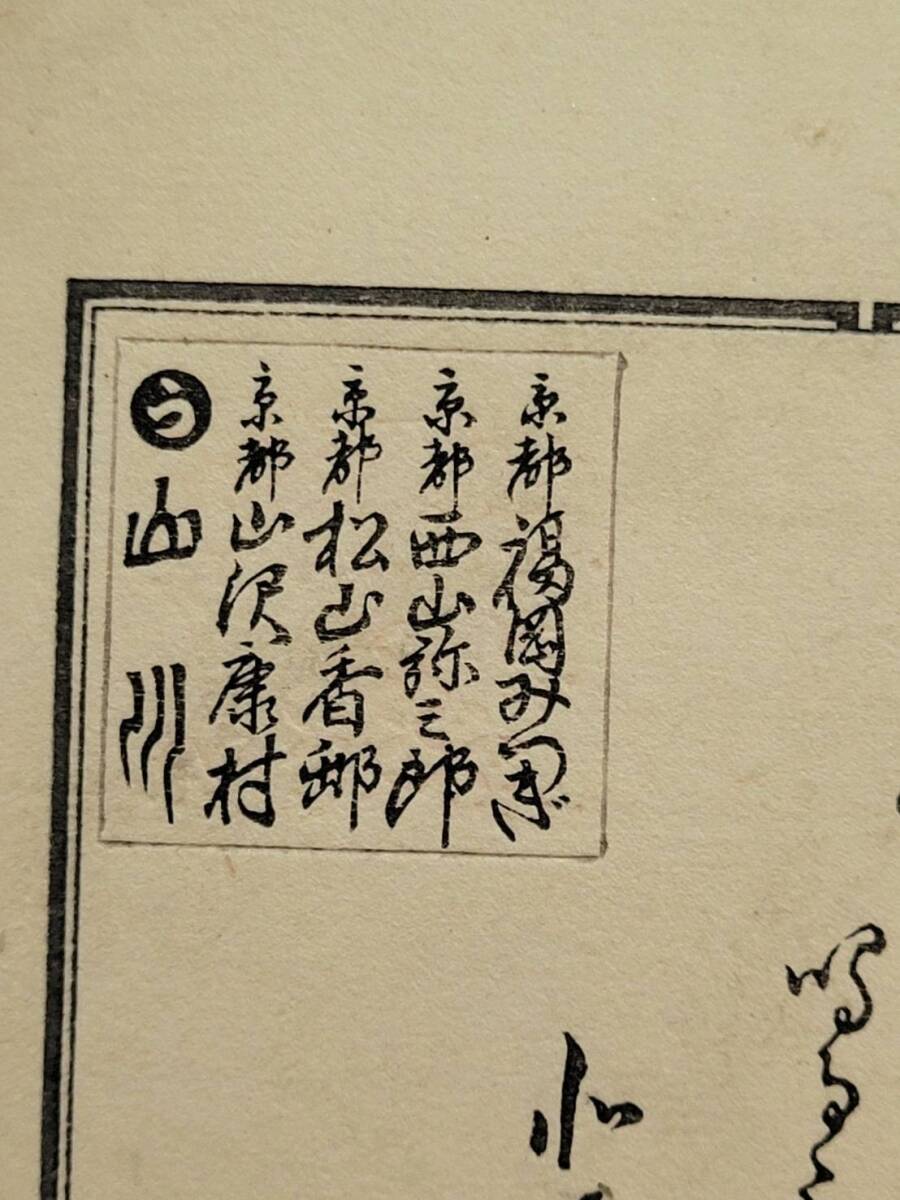 京都福岡み
京都西山弥三郎
京都松山香邨
京都山沢康村
山川
鳴る